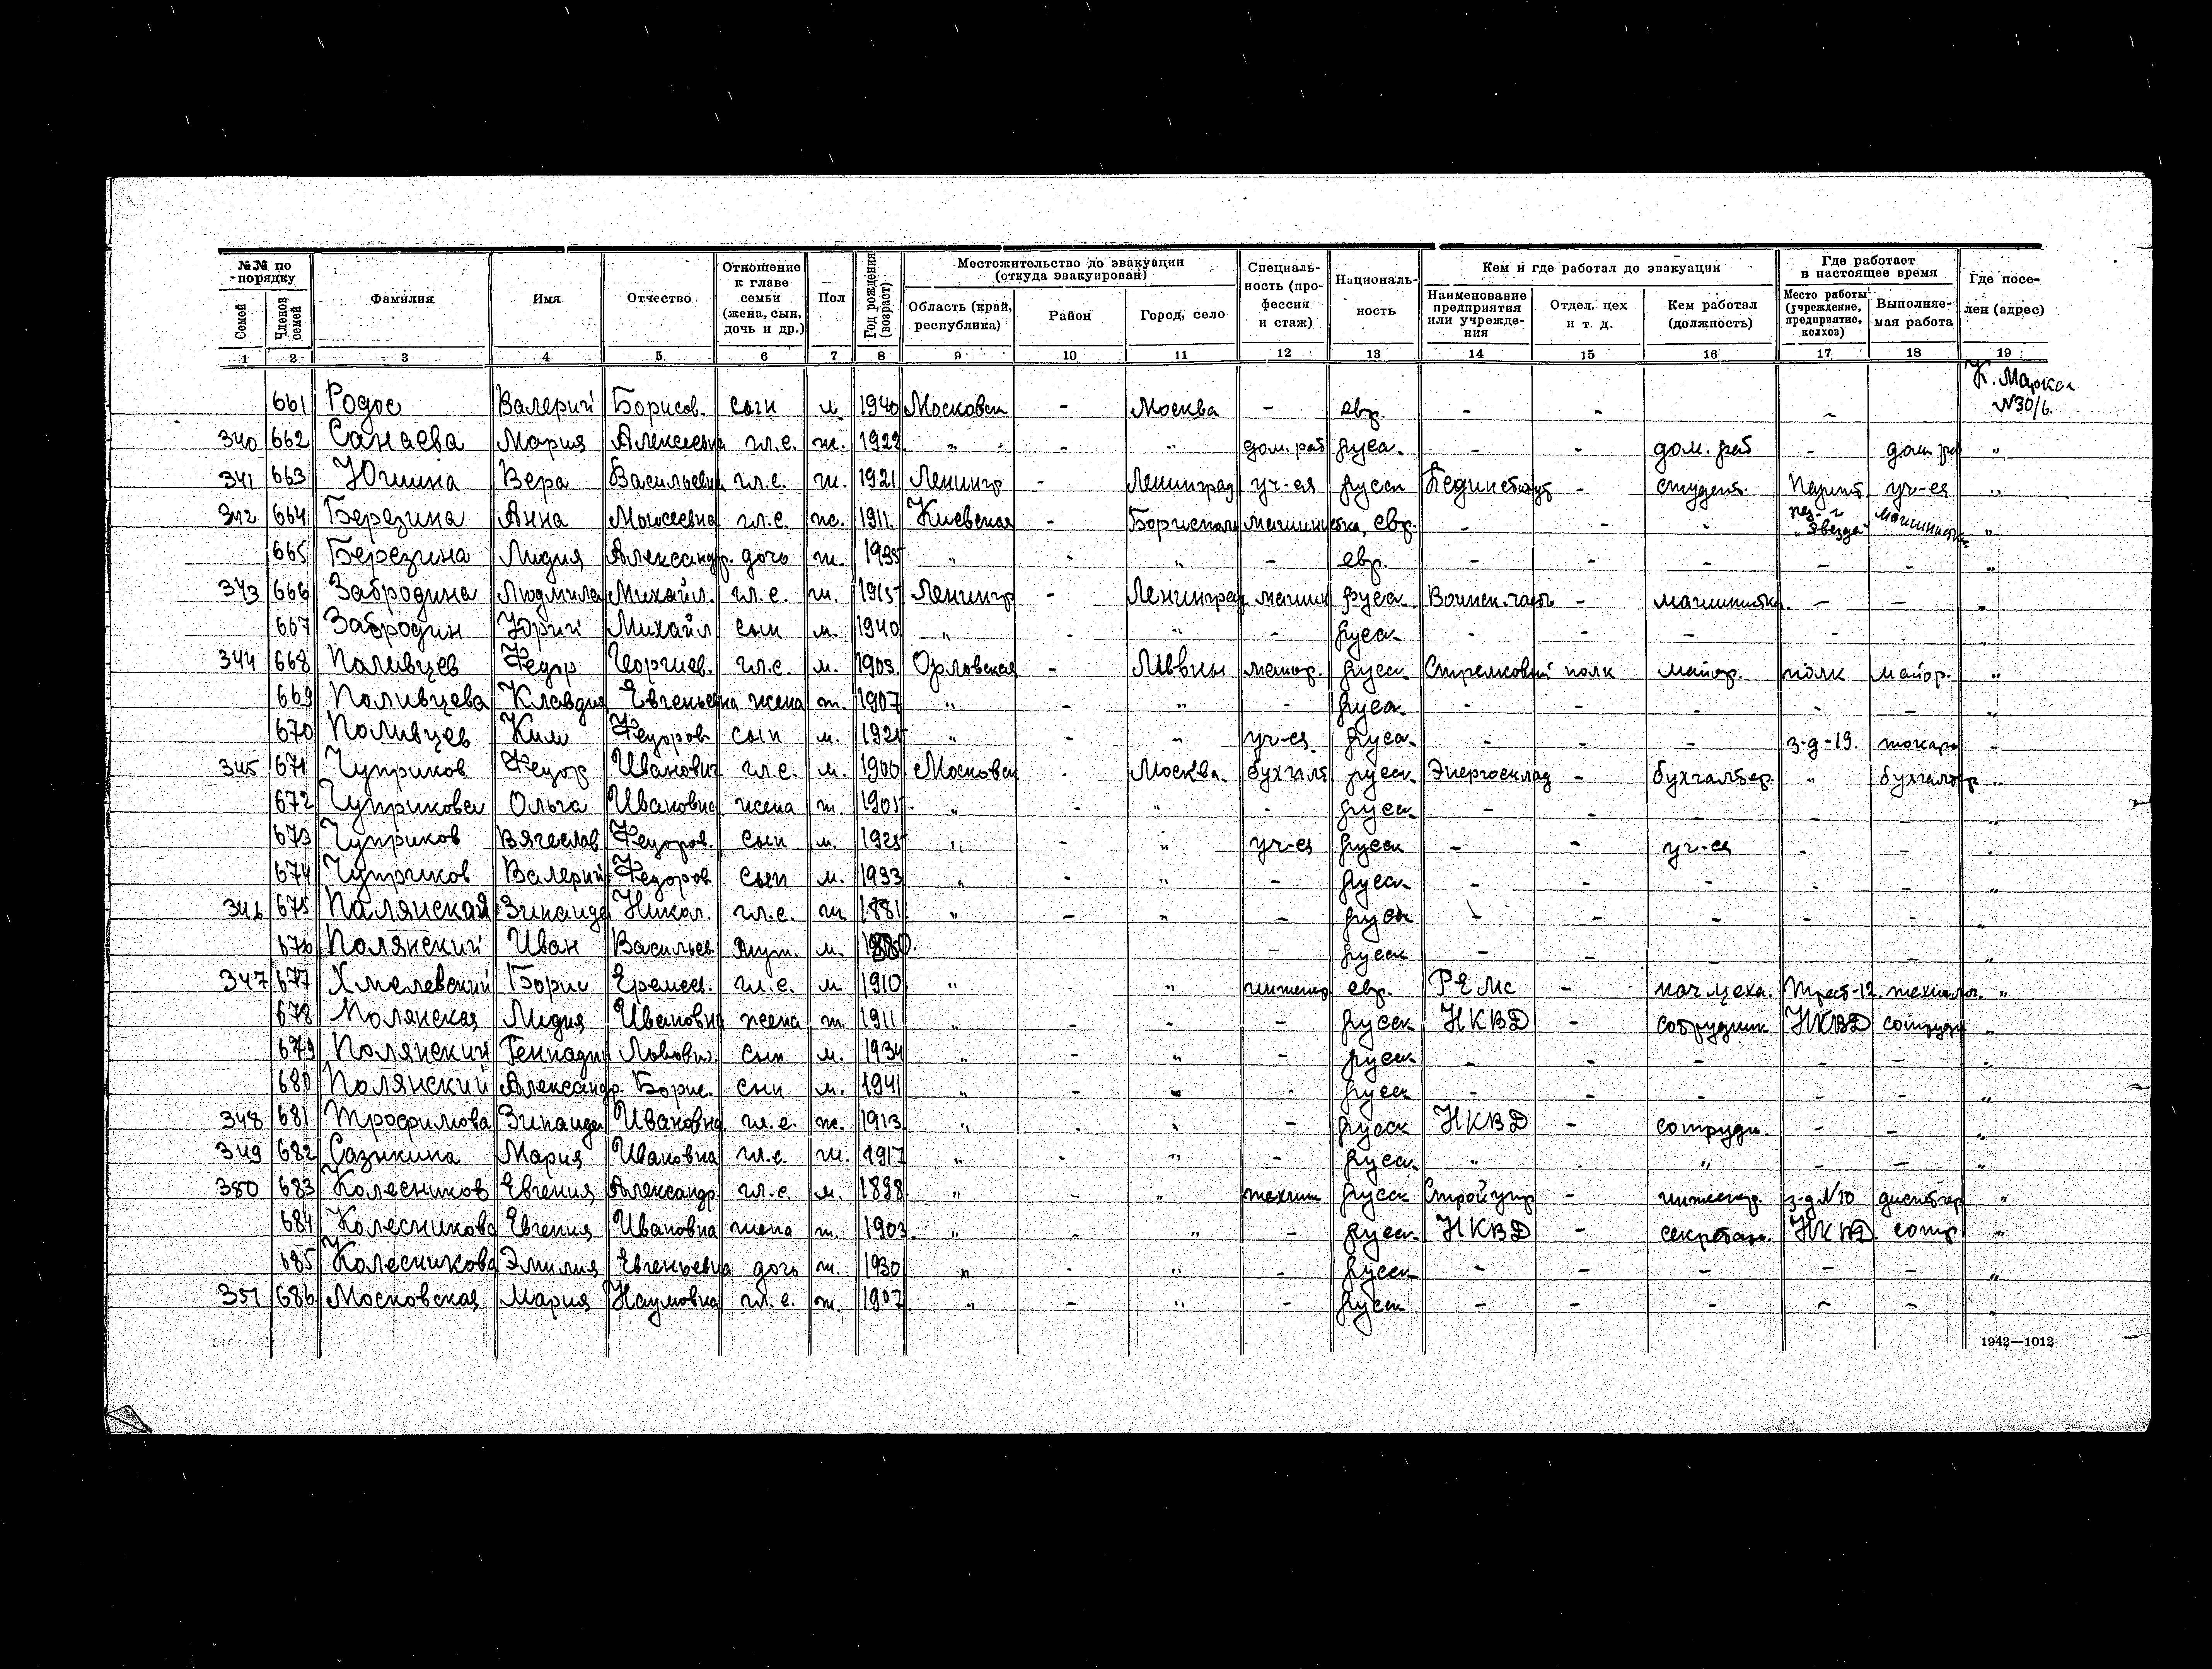 №№ по порядку Фамилия Имя Отчество Отношение к главе семьи (жена, сын, дочь и др.) Пол Год рождения (возраст) Местожительство до эвакуации (откуда эвакуирован) Специальность (профессия и стаж) Националь-ность Кем и где работал до эвакуации Где работает в настоящее время Где посе-лен (адрес)
Семей Членов семей Область (край, республика) Район Город, село Наименование предприятия или учрежде-ния Отдел. цех и т. д. Кем работал (должность) Место работы (учреждение, предприятие, колхоз) Выполняе-мая работа
1 2 3 4 5 6 7 8 9 10 11 12 13 14 15 16 17 18 19
К. Маркса
661 Родос Валерий Борисов. сын м. 1940 Московск - Москва - евр. - - - №30/6.
340 662 Санаева Мария Алексеевна гл.с. ж. 1922 " - " дом. раб русск. - - дом. раб - дом. ра "
341 663 Юшина Вера Васильевна гл.с. ж. 1921 Ленингр - Ленинград уч-ся русск Пединститут - студент. уч-ся "
342 664 Березина Анна Моисеевна гл.с. ж. 1911 Киевская - Борисполь машинистка, евр. - - - "Звезда" машинистка "
665 Березина Лидия Александр. дочь ж. 1935 " - " - евр. - - - - - "
343 666 Забродина Людмила Михайл. гл.с. ж. 1915 Ленингр - Ленинград машин русск. Воинск. часть - машинистка. - - "
667 Забродин Юрий Михайл сын м. 1940 " - " - русск. - - - - - "
344 668 Поливцев Федор Георгиев. гл.с. м. 1903. Орловская - Ливвны майор. русск. Стрелковый полк майор. полк майор. "
669 Поливцева Клавдия Евгеньевна жена ж. 1907 " - " - русск. - - - - - "
670 Поливцев Ким Федоров. сын м. 1925 " - " уч-ся русск. - - - з-д-19. токарь -
345 671 Чуприков Федор Иванович гл.с. м. 1900 Московск - Москва. бухгалт русск. Энергосклад - бухгалтер. " бухгалтер "
672 Чуприкова Ольга Ивановна жена ж. 1901 " - " - русск. - - - - - "
673 Чуприков Вячеслав Федоров. сын м. 1925 " - " уч-ся русск - - уч-ся - - "
674 Чуприков Валерий Федоров сын м. 1933 " - " - русск. - - - - - "
346 675 Палянская Зинаида Никол. гл.с. ж 1881 " - " - русск - - - - - "
676 Полянский Иван Васильев. м. - русск - - - - - "
347 677 Хмелевский Борис Еремеев. гл.с. м 1910 " - " инженер евр. - нач цеха. Трест-12. "
678 Полянская Лидия Ивановна жена ж. 1911 " - - - русск НКВД - сотрудник НКВД сотрудн -
679 Полянский Геннадий Львович. сын м. 1934 " - " - русск - - - - - "
680 Полянский Александр. Борис. сын м. 1941 " - " - русск - - - - - "
348 681 Трофимова Зинаида Ивановна гл.с. ж. 1913 " - " - русск НКВД - сотрудн. - - "
349 682 Сазыкина Мария Ивановна гл.с. ж. 1917 " - " - русск. " " - - "
380 683 Колесников Евгения Александр гл.с. м. 1898 " - " техник русск Стройупр - инженер. з-д №10 диспетчер "
684 Колесникова Евгения Ивановна жена ж. 1903 " - " - русск. НКВД - секретарь. НКВД сотр "
685 Колесникова Эмилия Евгеньевна дочь ж. 1930 " - " - русск - - - - - "
351 686 Московская Мария Наумовна гл.с. ж. 1907 " - " - русск - - - - - "
1942—1012